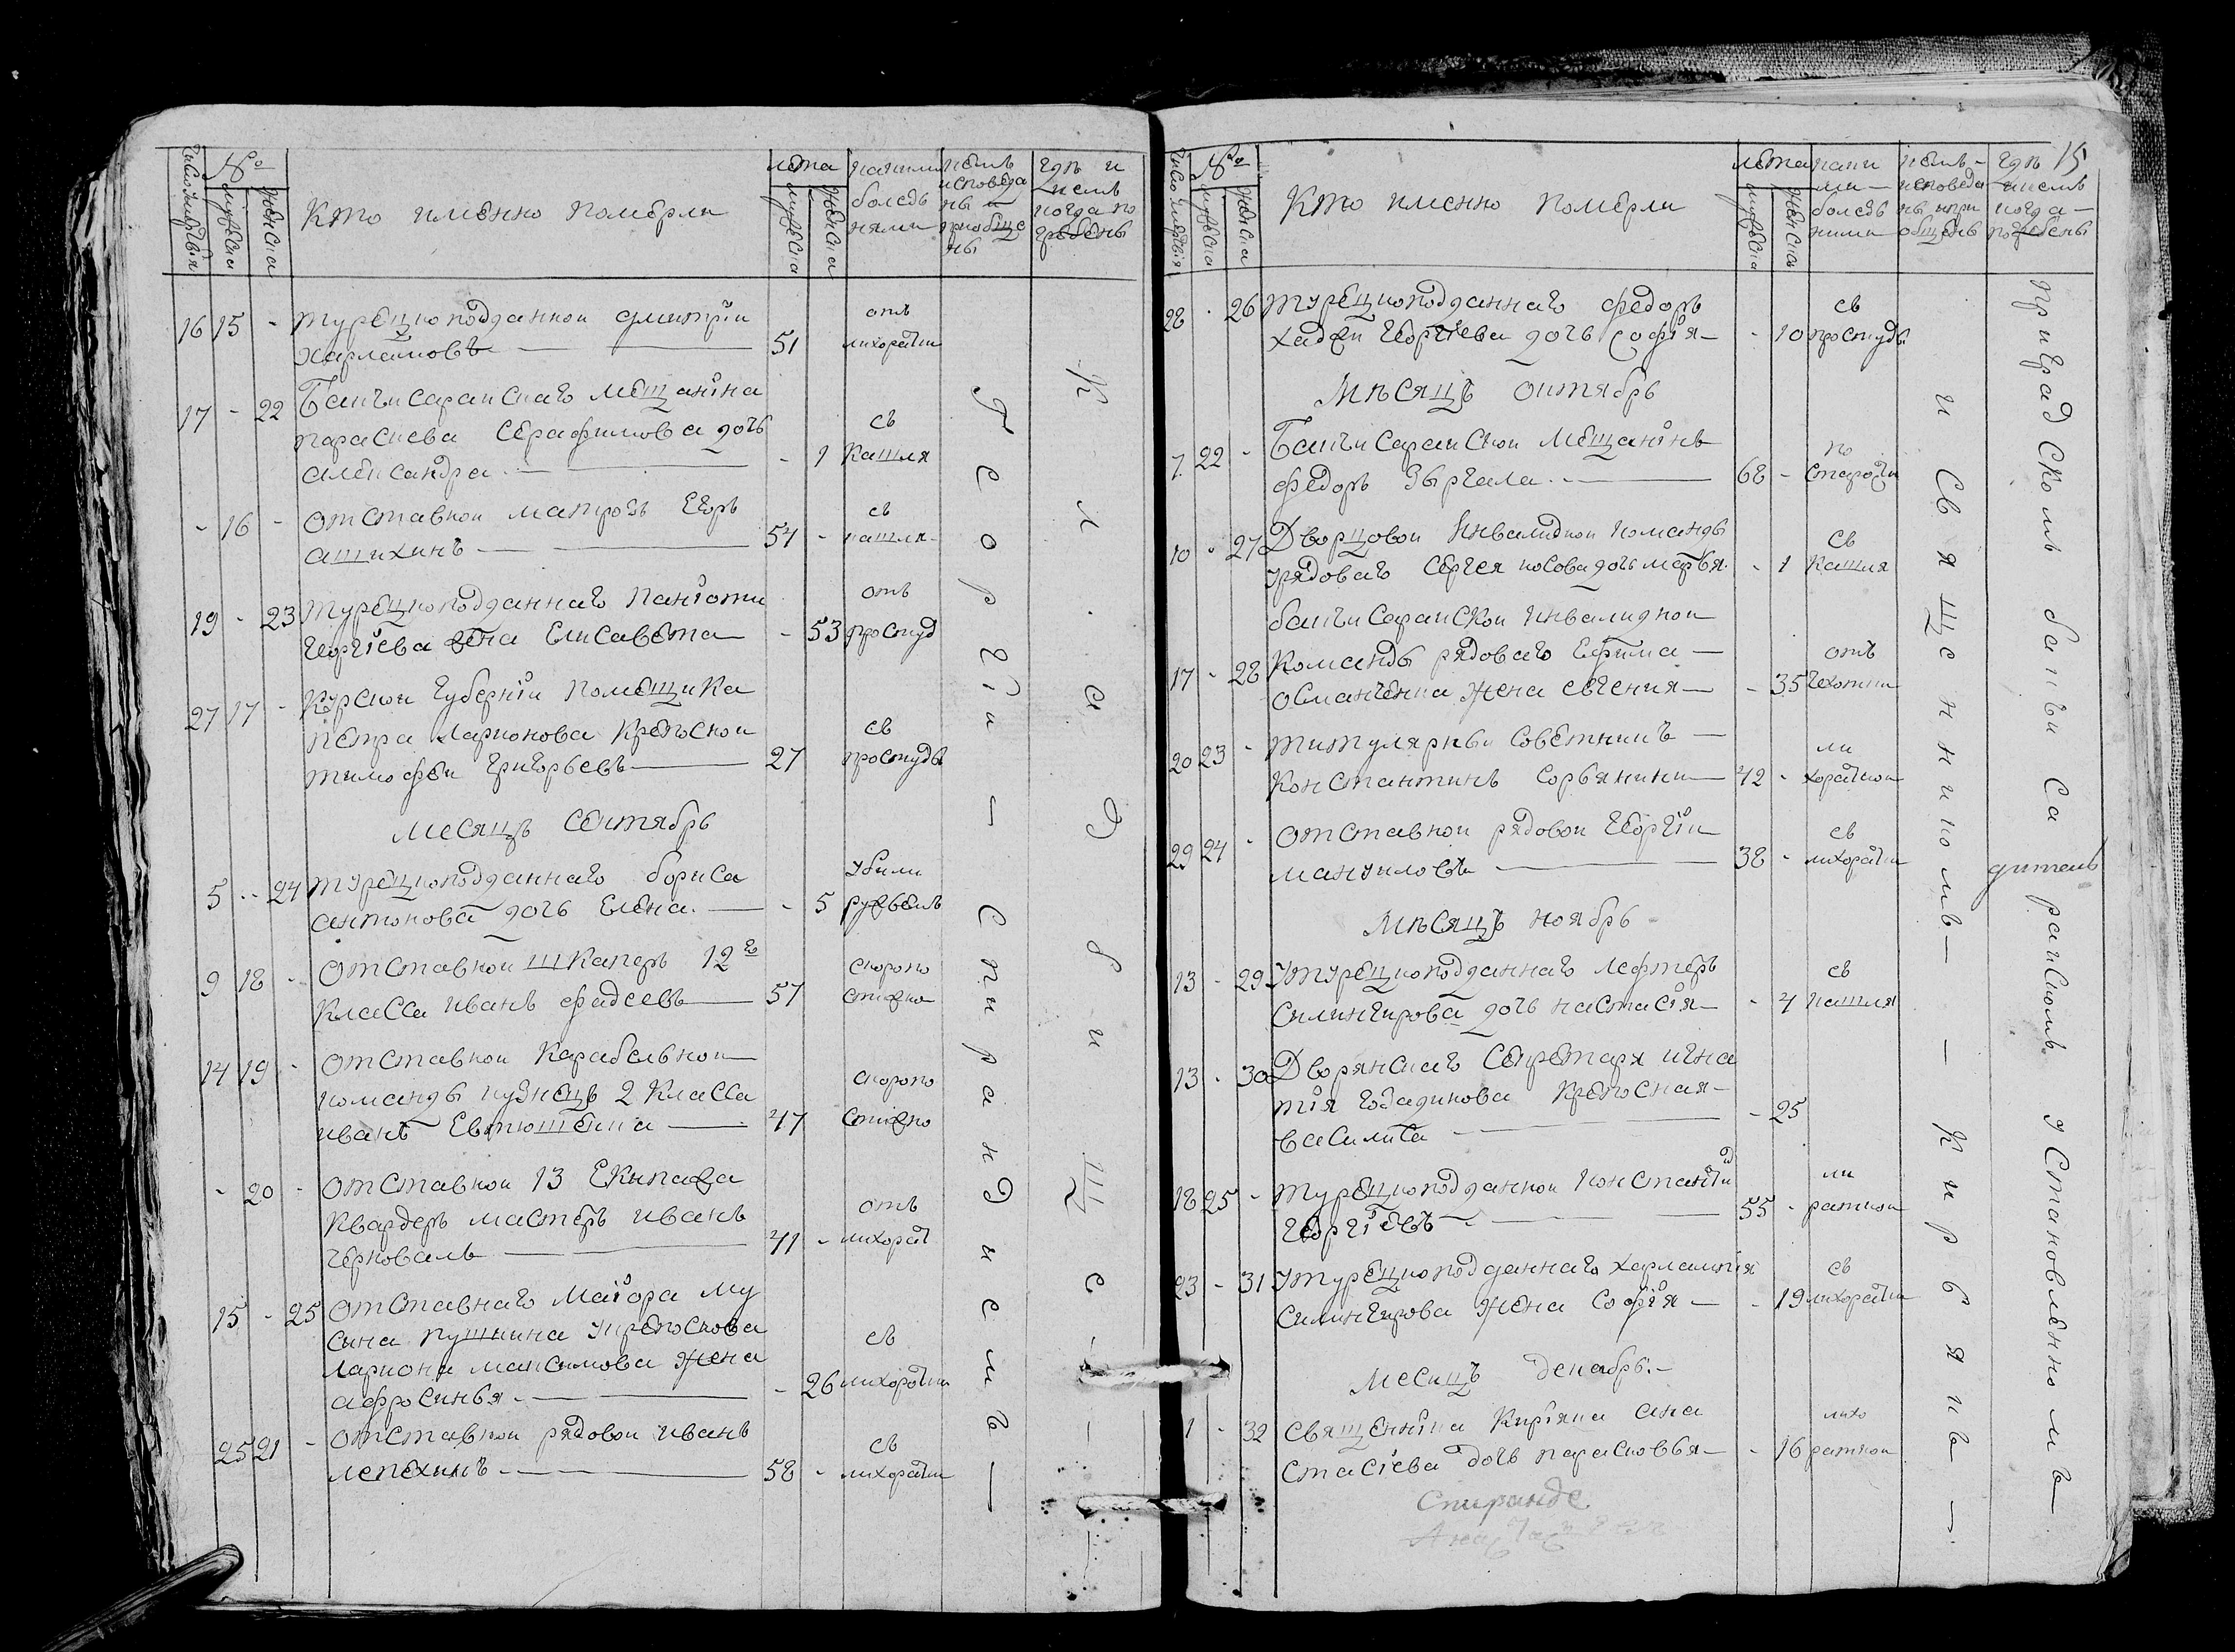 число умертвія
№
мужеска
женска
кто именно померли
лѣта
мужеска
женска
какими
болезь
нями
кемъ
исповеда
ны и
приобще
ны
гдѣ и
кемъ
когда по
гребены
16 15 - турецкоподданной дмитрій
Харламовъ 51
отъ
лихоратки
17 - 22 Бакчисарайскаго мещанина
параскева Серафимова дочь
александра - 1
съ
Кашля
- 16 - отставной матрозъ Егоръ
ашихинъ 54 -
съ
кашля
19 - 23 турецкоподданнаго паніоти
георгіева жена Елисавета - 53
отъ
простуд
27 17 - Курской губерніи помещика
петра Ларионова крепоской
тимофеи григорьевъ 27
съ
простуды
месяцъ Сентябрь
5 - 24 турецкоподданнаго бориса
антонова дочь Елена - 5
убили
ружьемъ
9 18 - отставной шкаперъ 12го
класса иванъ фадеевъ 57
скоропо
стижно
14 19 - отставной карабельной
команды кузнецъ 2 класса
иванъ 47
скоропо
стижно
- 20 - отставной 13 Екипажа
квардеръ мастеръ иванъ
Черноваль 41 -
отъ
лихорат
15 - 25 отставнаго маіора му
сина пушкина укрепоскова
лариона максимова жена
афросинья - 26
съ
лихоратки
25 21 - отставной рядовой иванъ
лепехинъ 58 -
съ
лихоратки
Георгій Спирандиемъ
кладбище
15
число умертвія
№
мужеска
женска
кто именно померли
лѣта
мужеска
женска
каки
ми
болезь
ними
кемъ
исповеда
ны и при
общены
гдѣ
и кемъ
когда
погребены
28 - 26 турецкоподданнаго федоръ
хаджи георгіева дочь софія - 10
съ
простуды
Мѣсяцъ октябрь
7 22 - Бакчисарайской мещанинъ
федоръ Зыргала 68 -
по
старости
10 - 27 Дворцовой инвалидной команды
урядоваго сергея косова дочь марья - 1
съ
Кашля
бакчисарайской инвалидной
17 - 28 Команды рядоваго Ефима
Османченка жена евгения - 35
отъ
чехотки
20 23 - титулярный советникъ
Константинъ 42 -
ли
хораткой
29 24 - отставной рядовой георгій
мануиловъ 38 -
съ
лихоратки
Мѣсяцъ ноябрь
13 - 29 Утурецкоподданнаго лефтеръ
Силингирова дочь настасія - 4
съ
кашля
13 - 30 Дворянскаго Секретаря игна
тія крепосная
василиса - 25
18 25 - турецкоподданной константи
георгіевъ 55 -
ли
раткой
23 - 31 Утурецкоподданнаго харлампія
Силингирова жена Софія - 19
съ
лихоратки
Месяцъ декабрь
1 - 32 священника Киріяка ана
стасіева дочь парасковья - 16
лихо
раткой
Спиранде
и священникомъ - Кирьякъ
при градскомъ бакчи са райскомъ установленномъ
дителъ